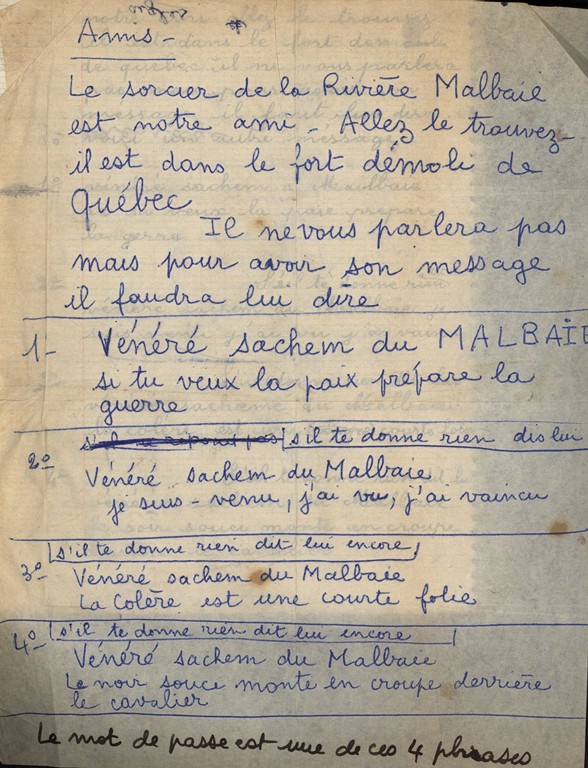 Amis -
Le sorcier de la Rivière Malbaie
est notre ami - Allez le trouvez -
il est dans le fort démoli de
Québec
Il ne vous parlera pas
mais pour avoir son message
il faudra lui dire
1- Vénéré sachem du MALBAÏE
si tu veux la paix prépare la
guerre
s'il te donne rien dis lui
2º Vénéré sachem du Malbaie
je suis - venu, j'ai vu, j'ai vaincu
s'il te donne rien dit lui encore
3º Vénéré sachem du Malbaie
La Colère est une courte folie
4º s'il te donne rien dit lui encore
Vénéré sachem du Malbaie
Le noir souce monte en croupe derrière
le cavalier
Le mot de passe est une de ces 4 phrases